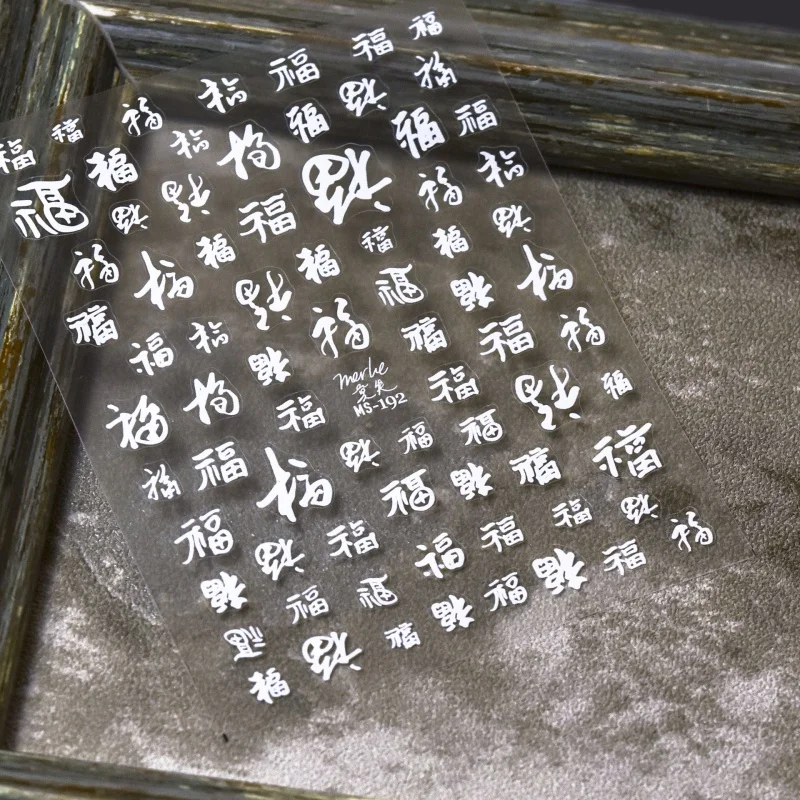 福 福 福 福 福
福 福 福 福 福 福
福 福 福 福 福 福
福 福 福 福 福 福
福 福 福 福 福 福
福 福 福 福 福 福
福 福 福 福 福 福
merhe
MS-192
福 福 福 福 福 福
福 福 福 福 福 福
福 福 福 福 福 福
福 福 福 福 福 福
福 福 福 福 福 福
福 福 福 福 福